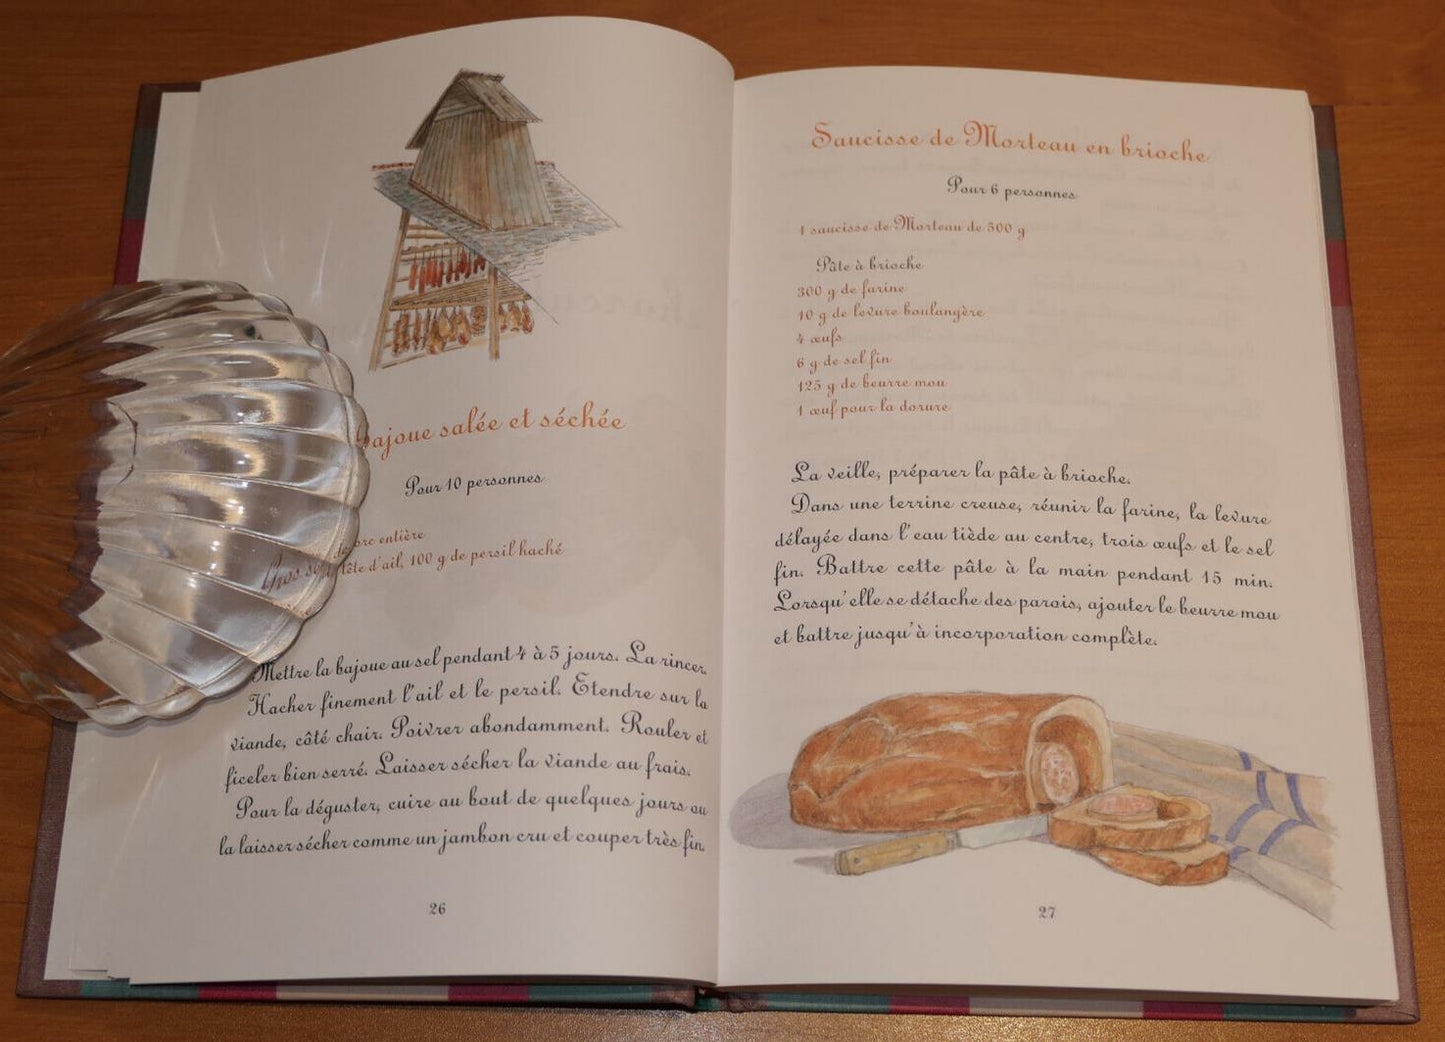 ajoue salée et séchée
Pour 10 personnes
de porc entière
Gros se tête d'ail, 100 g de persil haché
Mettre la bajoue au sel pendant 4 à 5 jours. La rincer.
Hacher finement l'ail et le persil. Etendre sur la
viande, côté chair. Poivrer abondamment. Rouler et
ficeler bien serré. Laisser sécher la viande au frais.
Pour la déguster, cuire au bout de quelques jours ou
la laisser sécher comme un jambon cru et couper très fin.
26
Saucisse de Morteau en brioche
Pour 6 personnes
1 saucisse de Morteau de 500 g
Pâte à brioche
300 g de farine
10 g de levure boulangère
4 œufs
6 g de sel fin
125 g de beurre mou
1 œuf pour la dorure
La veille, préparer la pâte à brioche.
Dans une terrine creuse, réunir la farine, la levure
délayée dans l'eau tiède au centre, trois œufs et le sel
fin. Battre cette pâte à la main pendant 15 min.
Lorsqu'elle se détache des parois, ajouter le beurre mou
et battre jusqu'à incorporation complète.
27